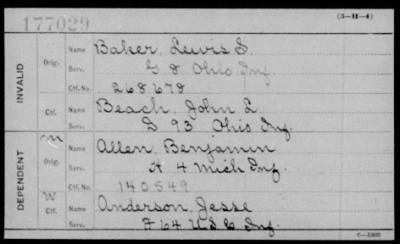 177029
(3—H—4)
INVALID
Orig.
Name Baker, Lewis S.
Serv. G 8 Ohio Inf.
Ctf. No. 268678
Ctf.
Name Beach, John L.
Serv. G 93 Ohio Inf.
DEPENDENT
M
Orig.
Name Allen, Benjamin
Serv. H 4 Mich Inf.
Ctf. No. 140549
W
Ctf.
Name Anderson, Jesse
Serv. F 64 U S C Inf.